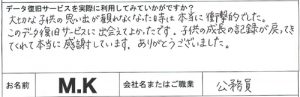 データ復旧サービスを実際に利用してみていかがですか？
大切な子供の思い出が観れなくなった時は本当に衝撃的でした。
このデータ復旧サービスに出会えてよかったです。子供の成長の記録が戻ってき
てくれて本当に感謝しています。ありがとうございました。
お名前 M.K 会社名またはご職業 公務員